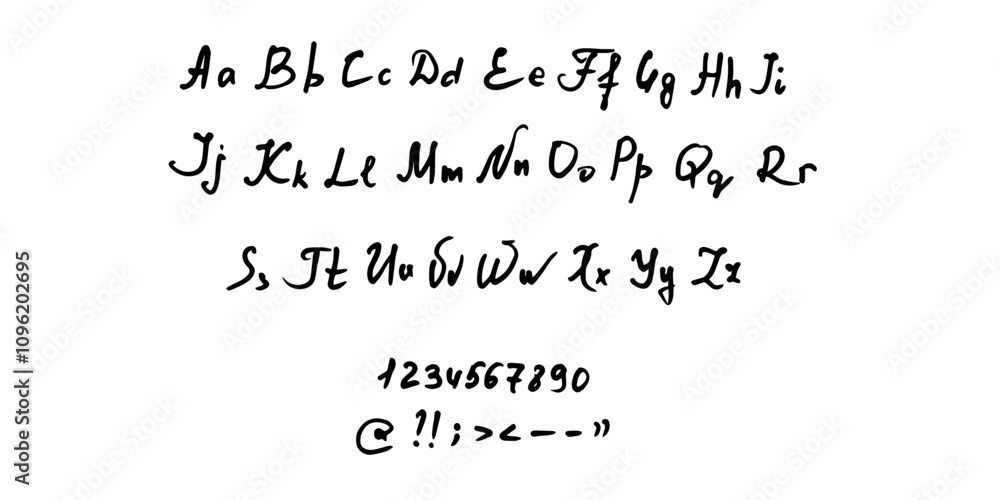 Aa Bb Cc Dd Ee Ff Gg Hh Ii
Jj Kk Ll Mm Nn Oo Pp Qq Rr
Ss Tt Uu Vv Ww Xx Yy Zz
1234567890
@ ?! ; > < — – ”
Adobe Stock | #1096202695